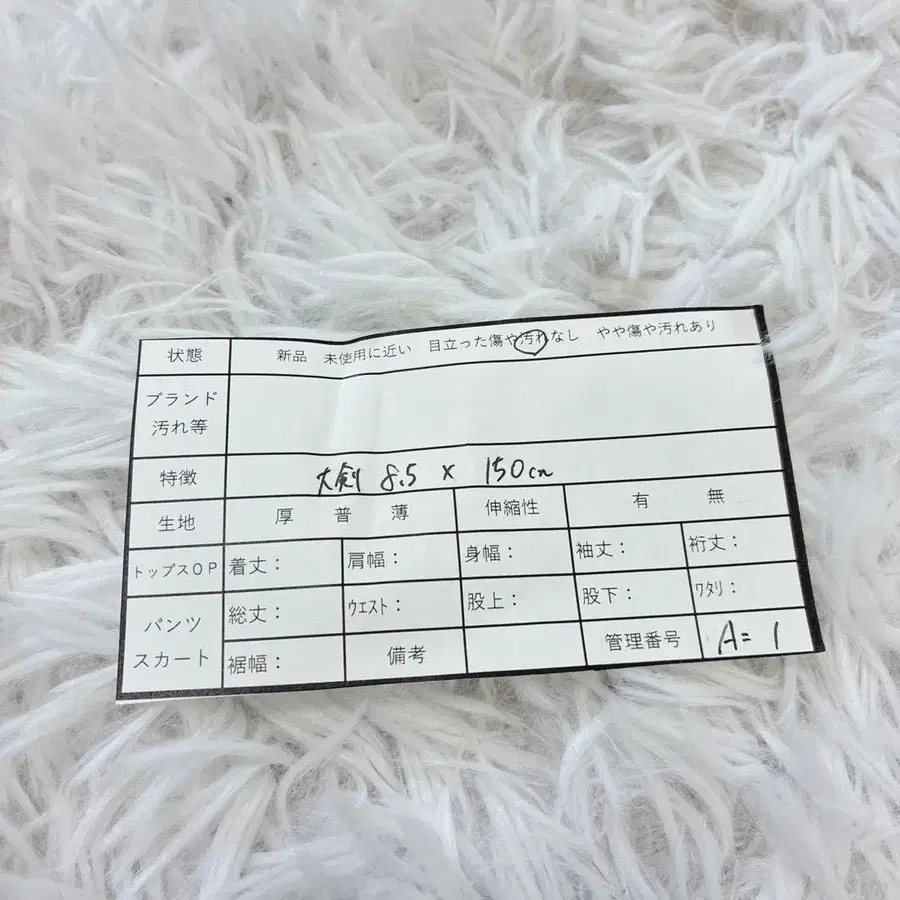 状態 新品 未使用に近い 目立った傷や汚れなし やや傷や汚れあり
ブランド
汚れ等
特徴 大剣 8.5 x 150cm
生地 厚 普 薄 伸縮性 有 無
トップスOP 着丈： 肩幅： 身幅： 袖丈： 裄丈：
パンツ
スカート
総丈： ウエスト： 股上： 股下： ワタリ：
裾幅： 備考 管理番号 A=1